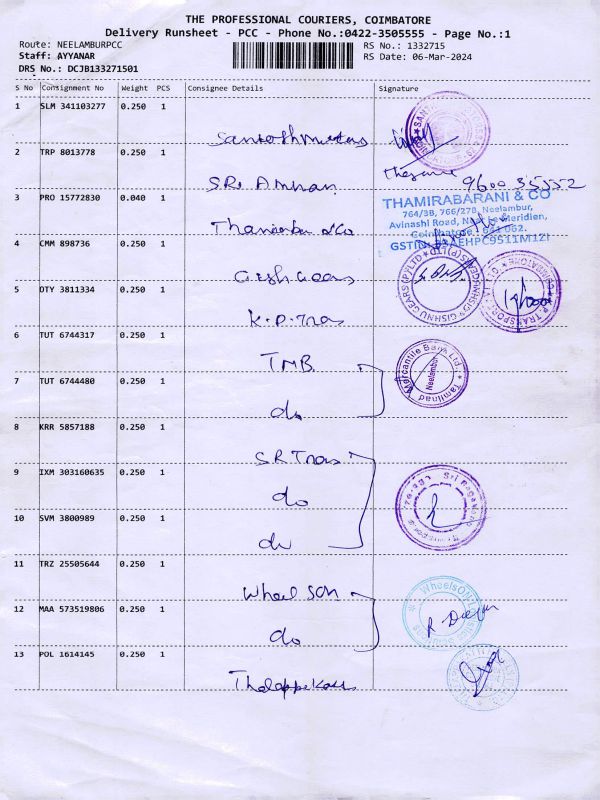 THE PROFESSIONAL COURIERS, COIMBATORE
Delivery Runsheet - PCC - Phone No.:0422-3505555 - Page No.:1
Route: NEELAMBURPCC RS No.: 1332715
Staff: AYYANAR RS Date: 06-Mar-2024
DRS No.: DCJB133271501
S No Consignment No Weight PCS Consignee Details Signature
1 SLM 341103277 0.250 1
2 TRP 8013778 0.250 1
S.R. Amman
9600 35552
3 PRO 15772830 0.040 1
THAMIRABARANI & CO
764/3B, 766/27B, Neelambur,
Avinashi Road, Meridien,
Coimbatore - 641 062.
GSTIN
4 CMM 898736 0.250 1
GISHNU GEARS (P) LTD
5 DTY 3811334 0.250 1
K.P. Tras
6 TUT 6744317 0.250 1
TMB
Tamilnad Mercantile Bank Ltd.
Neelambur
7 TUT 6744480 0.250 1
do
8 KRR 5857188 0.250 1
S.R Tras
9 IXM 303160635 0.250 1
do
10 SVM 3800989 0.250 1
do
11 TRZ 25505644 0.250 1
Wheel SON
WheelsON
12 MAA 573519806 0.250 1
do
13 POL 1614145 0.250 1